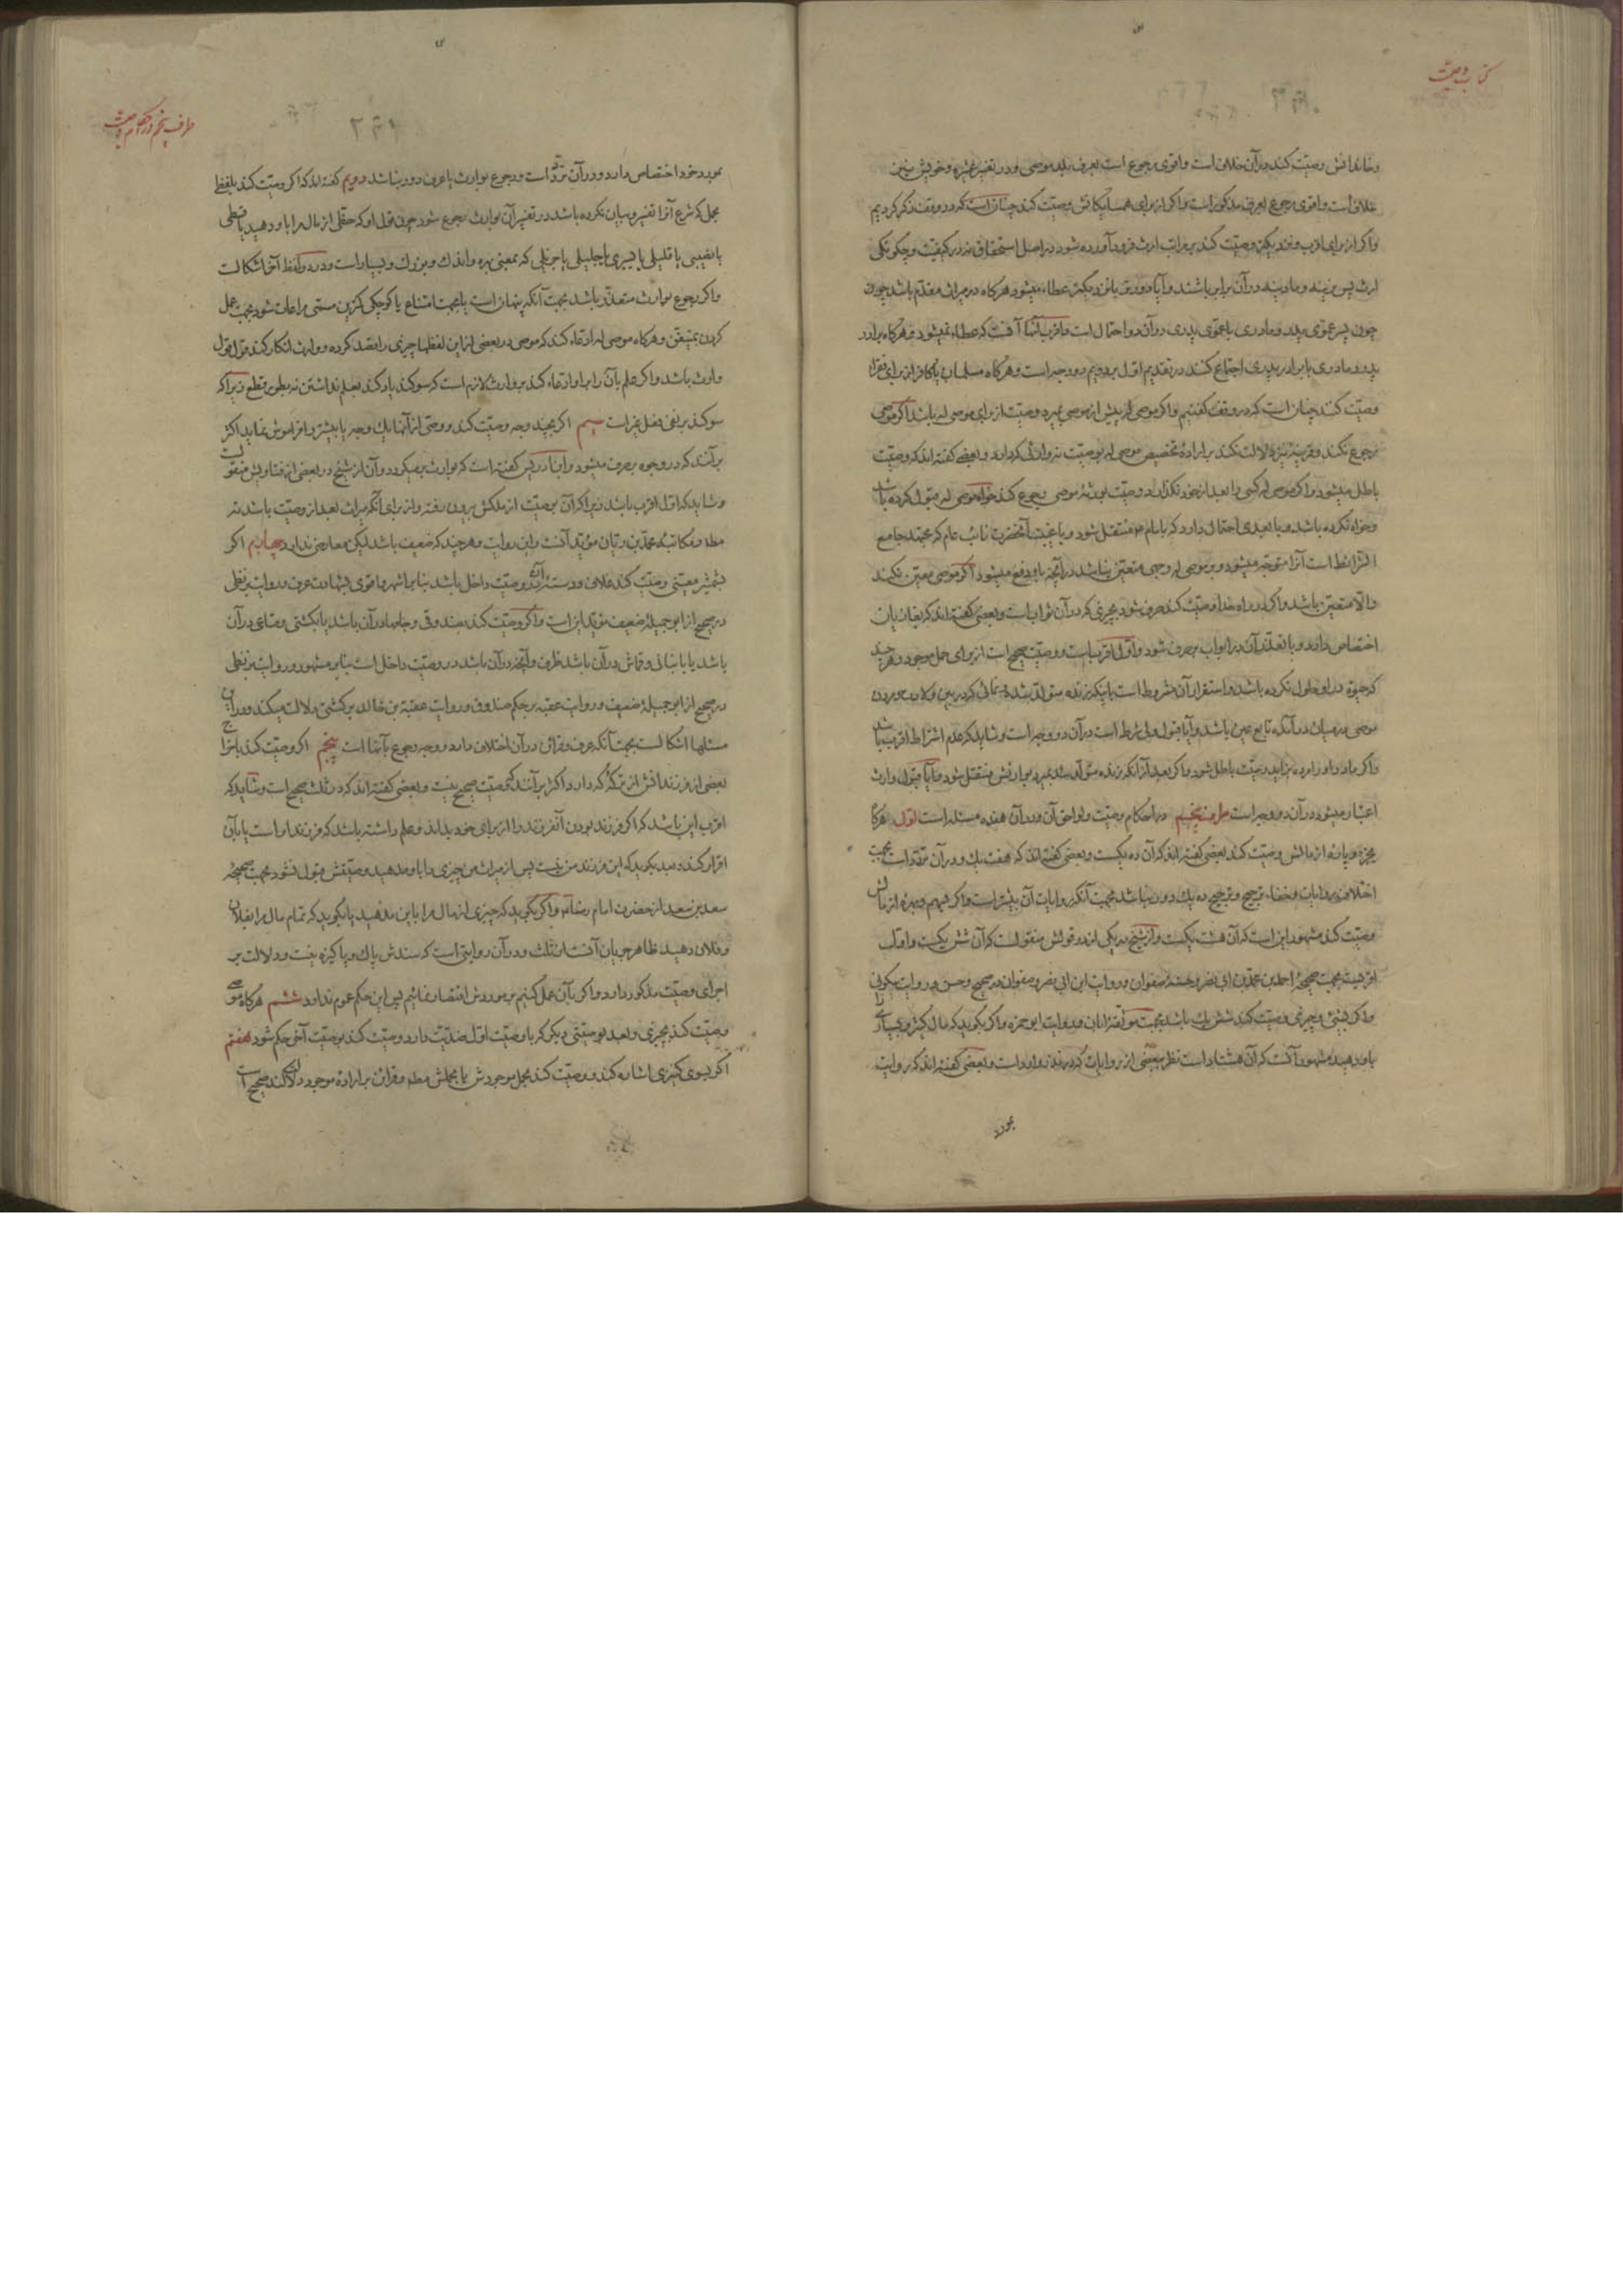 کتاب وصیت
و خاندانش وصیت کند در آن خلاف است و اقوی رجوع است بعرف بلد موصی و در تفسیر عشیره و خویش نیز
خلاف است و اقوی رجوع بعرف مذکور است و اگر از برای همسایگانش وصیت کند چنان است که در وقف ذکر کردیم
و اگر از برای اقرب و نزدیکتر وصیت کند بر مراتب ارث فرود آورده شود در اصل استحقاق نه در کیفیت و چگونگی
ارث پس نرینه و مادینه در آن برابر باشند و آیا دورتر با نزدیکتر عطاء میشود هرگاه در میراث مقدم باشد چون
چون پسر عموی پدر و مادری با عموی پدری در آن دو احتمال است و اقرب آنها آنست که عطاء نمیشود و هرگاه برادر
پدر و مادری با برادر پدری اجتماع کنند در تقدیم اول بر دویم دو وجه است و هرگاه مسلمان یا کافر از برای فقرا
وصیت کند چنان است که در وقف گفتیم و اگر موصی له پیش از موصی بمیرد وصیت از برای موصی له باشد اگر موصی
رجوع نکند و قرینه نیز دلالت نکند بر ارادهٔ تخصیص موصی له بوصیت نه وارثی که دارد و بعضی گفته‌اند که وصیت
باطل میشود و اگر موصی له کسی را بعد از خود نگذارد وصیت بورثهٔ موصی رجوع کند خواه موصی له قبول کرده باشد
و خواه نکرده باشد و یا بعدی احتمال دارد که بامام ۴ منتقل شود و با غیبت آنحضرت نائب عام که مجتهد جامع
الشرائط است آنرا متوجه میشود و بر موصی له وجهی متعین نباشد در آنچه باو دفع میشود اگر موصی معین نکند
والا متعین باشد و اگر در راه خدا وصیت کند صرف شود بچیزی که در آن ثواب است و بعضی گفته‌اند که بغازیان
اختصاص دارد و با تعذر آن در ابواب بر صرف شود و اول اقرب است و وصیت صحیح است از برای حمل موجود و هر چند
که حیوة در او حلول نکرده باشد و استقرار آن مشروط است باینکه زنده متولد شده زمانی که در بین ولادت و مردن
موصی در میان در آنکه تابع عین باشد و آیا قبول ولی شرط است در آن دو وجه است و شاید که عدم اشتراط اقرب باشد
و اگر مادر او را مرده بزاید وصیت باطل شود و اگر بعد از آنکه زنده متولد شد بمیرد بوارثش منتقل شود و آیا قبول وارث
اعتبار میشود در آن دو وجه است طرف پنجم در احکام وصیت و لواحق آن و در آن هفده مسئله است اول هرگاه
بجزء و پاره از مالش وصیت کند بعضی گفته‌اند که آن ده یکست و بعضی گفته‌اند که هفت یک و در آن تردد است بجهت
اختلاف روایات و خفاء ترجیح و ترجیح ده یک دور نباشد بجهت آنکه روایات آن بیشتر است و اگر بسهم و بهره از مالش
وصیت کند مشهور این است که آن هشت یکست و از شیخ در یکی از دو قولش منقولست که آن شش یکست و اول
اقربست بجهت صحیحهٔ احمد بن محمد بن ابی نصر و حسنهٔ صفوان و روایت ابن ابی نصر و صفوان در صحیح و حسن و روایت سکونی
و اگر بشیء و چیزی وصیت کند شش یک باشد بجهت موثقهٔ ابان و روایت ابو حمزه و اگر بگوید که مال کثیر و بسیاری را
باو دهید مشهور آنست که آن هشتاد است نظر ببعضی از روایات که در نذر وارد است و بعضی گفته‌اند که روایت
بمورد
طرف پنجم در احکام وصیت
۲۹۲
بمورد خود اختصاص دارد و در آن تردد است و رجوع بوارث یا عرف دور نباشد دویم گفته‌اند که اگر وصیت کند بلفظ
مجمل که شرع آنرا تفسیر و بیان نکرده باشد در تفسیر آن بوارث رجوع شود چون قول او که حظی از مال مرا باو دهید یا قسطی
یا نصیبی یا قلیلی یا یسیری یا جلیلی یا جزیلی که بمعنی بهره و اندک و بزرگ و بسیار است و در دو لفظ آخر اشکالست
و اگر رجوع بوارث متعذر باشد بجهت آنکه پنهان است یا بجهت امتناع یا کوچکی کمترین مسمی مراعات شود بجهت عمل
کردن بمتیقن و هرگاه موصی له ادعاء کند که موصی در بعضی از این لفظها چیزی را قصد کرده و وارث انکار کند قول قول
وارث باشد و اگر علم بآن را بر او ادعاء کند بر وارث لازم است که سوگند یاد کند بعلم نداشتن نه بطور قطع زیرا که
سوگند بر نفی فعل غیر است سیم اگر بچند وجه وصیت کند و وصی از آنها یک وجه یا بیشتر را فراموش نماید اکثر
برآنند که در وجوه بر صرف میشود و ابن ادریس گفته است که بوارث برمیگردد و آن از شیخ در بعضی از فتاویش منقولست
و شاید که اول اقرب باشد زیرا که آن بوصیت از ملکش بیرون رفته و از برای آنکه میراث بعد از وصیت باشد نه
مطلقا و مکاتبهٔ محمد بن ریان مؤید آنست و این روایت و هر چند که ضعیف باشد لیکن معارضی ندارد چهارم اگر
بشمشیر معینی وصیت کند غلاف و دسته در آن وصیت داخل باشد بنابر اشهر و اقوی بشهادت عرف و روایت بزنطی
در صحیح از ابو جمیلهٔ ضعیف مؤید این است و اگر وصیت کند بصندوقی و جامها در آن باشد یا بکشتی و متاعی در آن
باشد یا بانبانی و قماش در آن باشد ظرف و آنچه در آن باشد در وصیت داخل است بنابر مشهور و روایت بزنطی
در صحیح از ابو جمیلهٔ ضعیف و روایت عقبه بر حکم صندوق و روایت عقبة بن خالد بر کشتی دلالت میکند و در این
مسئلها اشکالست بجهت آنکه عرف و قرائن در آن اختلاف دارد و وجه رجوع بآنها است پنجم اگر وصیت کند باخراج
بعضی از فرزندانش از ترکهٔ که دارد اکثر برآنند که وصیت صحیح نیست و بعضی گفته‌اند که در ثلث صحیح است و شاید که
اقرب این باشد که اگر فرزند بودن آنفرزند را از برای خود بداند و علم داشته باشد که فرزند او است یا بآن
اقرار کند و بعد بگوید که این فرزند من نیست پس از میراث من چیزی را باو مدهید وصیتش قبول نشود بجهت صحیحهٔ
سعد بن سعید از حضرت امام رضا ۴ و اگر بگوید که چیزی از مال مرا باین مدهید یا بگوید که تمام مال مرا بفلان
و فلان دهید ظاهر جریان آنست از ثلث و در آن روایتی است که سندش پاک و پاکیزه نیست و دلالت بر
اجرای وصیت مذکور دارد و اگر بآن عمل کنیم بر موردش اقتصار نمائیم پس این حکم عموم ندارد ششم هرگاه موصی
وصیت کند بچیزی و بعد بوصیتی دیگر که با وصیت اول ضدیت دارد وصیت کند بوصیت آخر حکم شود هفتم
اگر بسوی کنیزی اشاره کند و وصیت کند بحمل موجودش یا بحملش مطلقا و قرائن بر ارادهٔ موجود دلالت کند صحیح است